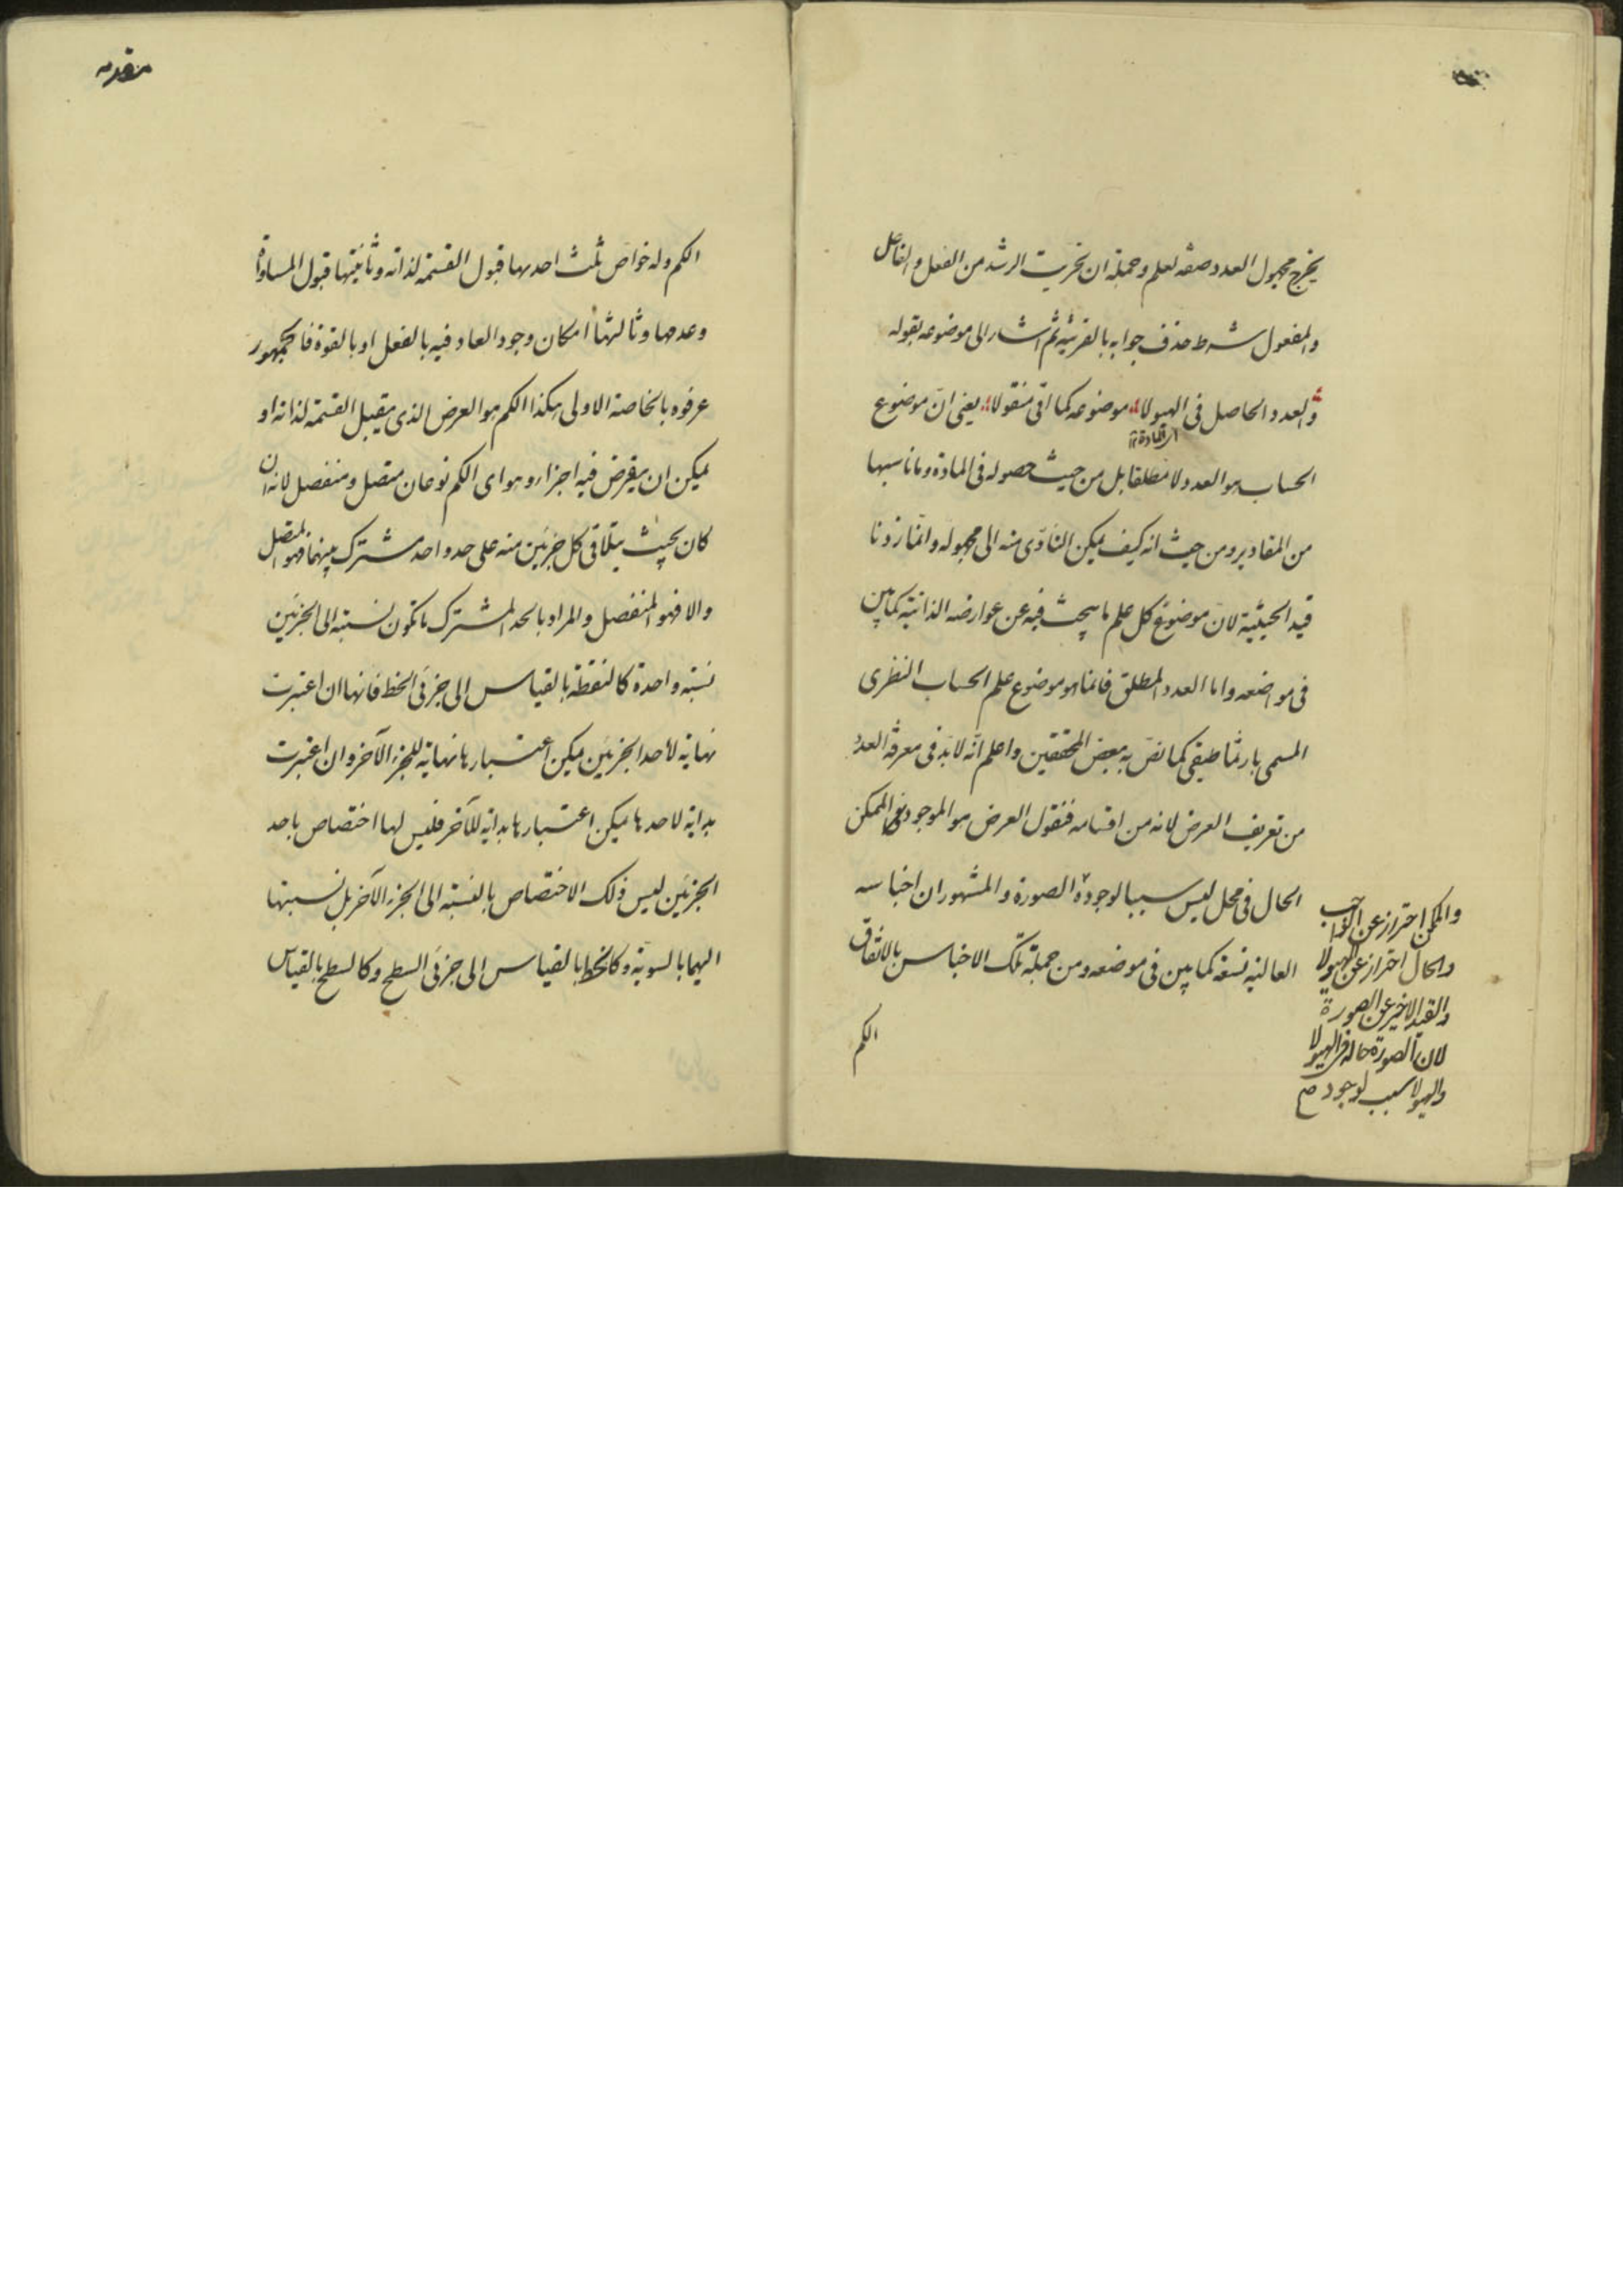 يخرج مجهول العدد صفة لعلم وجملة ان تحريت الرشد من الفعل والفاعل
والمفعول شرط حذف جوابه بالقرينة ثم اشار الى موضوعه بقوله
والعدد الحاصل فى الهيولا موضوعه كما اتى منقولا يعنى انّ موضوع
اى المادة
الحساب هو العدد لا مطلقا بل من حيث حصوله فى المادة وما ناسبها
من المقادير ومن حيث انه كيف يمكن التأدّى منه الى مجهوله وانّما زدنا
قيد الحيثية لانّ موضوع كل علم ما يبحث فيه عن عوارضه الذاتية كما بين
فى مواضعه واما العدد المطلق فانما هو موضوع علم الحساب النظرى
المسمى بارثماطيقى كما نصّ به بعض المحققين واعلم انّه لابدّ فى معرفة العدد
من تعريف العرض لانه من اقسامه فنقول العرض هو الموجود الممكن
الحال فى محل ليس سببا لوجوده الصورة والمشهور ان اجناسه
العالية تسعة كما بين فى موضعه ومن جملة تلك الاجناس بالاتفاق
الكم
والممكن احتراز عن الواجب
والحال احتراز عن الهيولا
والقيد الاخير عن الصورة
لان الصورة حالة فى الهيولا
والهيولا سبب لوجود
مقدمه
الكم وله خواصّ ثلث احديها قبول القسمة لذاته وثانيتها قبول المساواة
وعدمها وثالثها امكان وجود العاد فيه بالفعل او بالقوة فالجمهور
عرفوه بالخاصة الاولى هكذا الكم هو العرض الذى يقبل القسمة لذاته او
يمكن ان يفرض فيه اجزاء وهو اى الكم نوعان متصل ومنفصل لانه ان
كان بحيث يتلاقى كل جزئين منه على حد واحد مشترك بينهما فهو المتصل
والا فهو المنفصل والمراد بالحد المشترك ما تكون نسبته الى الجزئين
نسبة واحدة كالنقطة بالقياس الى جزئى الخط فانها ان اعتبرت
نهاية لاحد الجزئين يمكن اعتبارها نهاية للجزء الآخر وان اعتبرت
بداية لاحدها يمكن اعتبارها بداية للآخر فليس لها اختصاص باحد
الجزئين ليس ذلك الاختصاص بالنسبة الى الجزء الآخر بل نسبتها
اليهما بالسوية وكالخط بالقياس الى جزئى السطح وكالسطح بالقياس